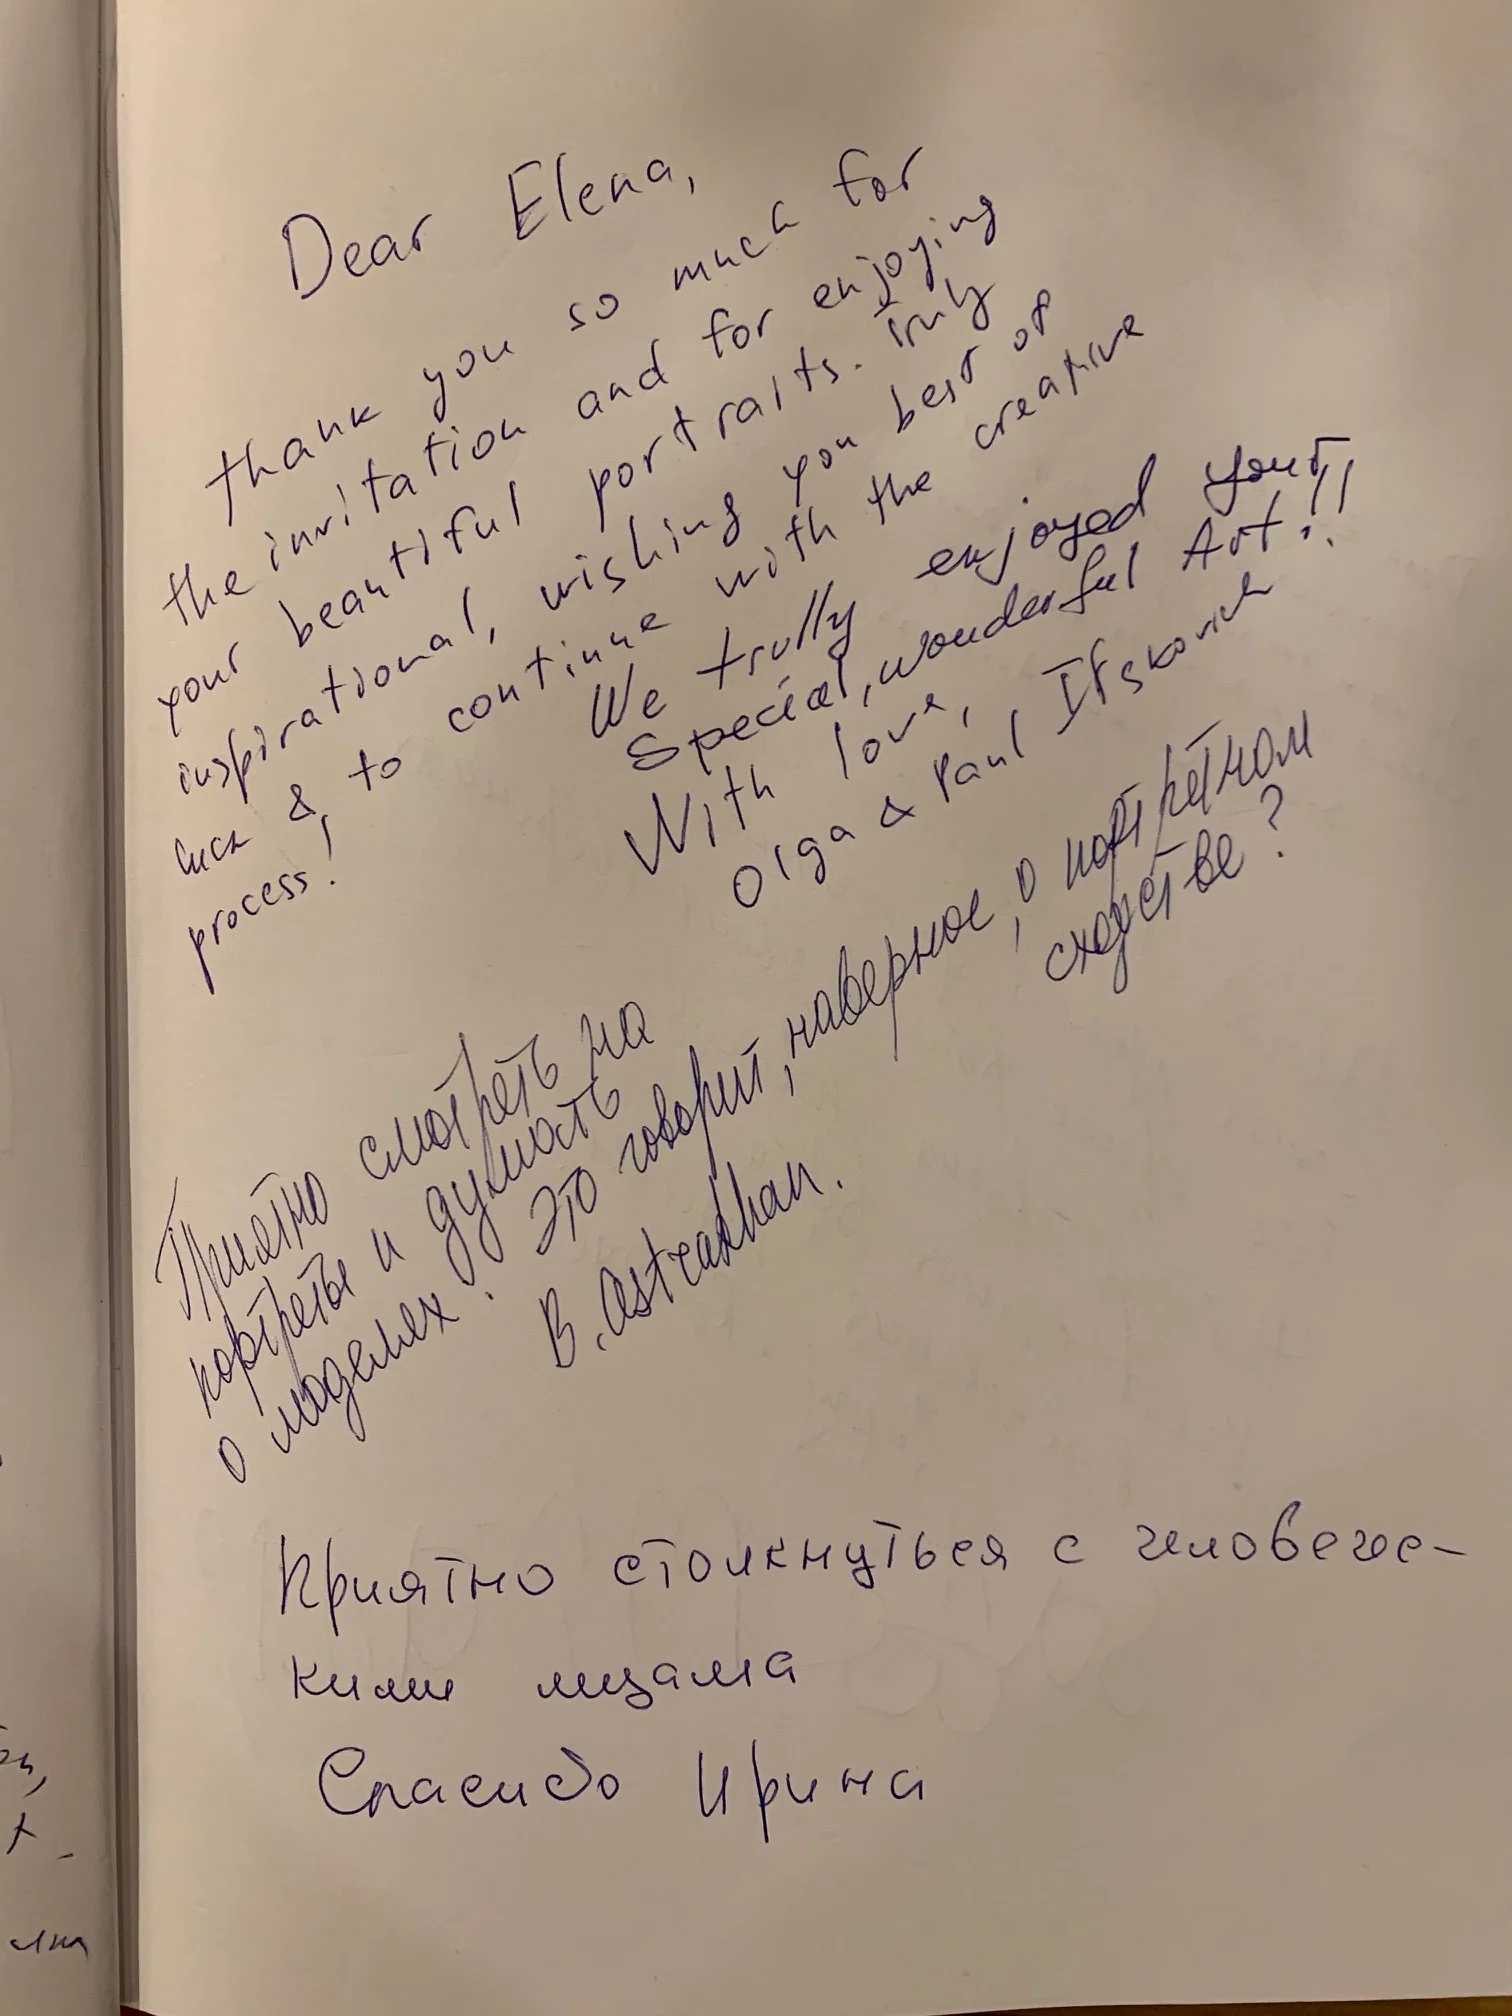 Dear Elena,
thank you so much for
the invitation and for enjoying
your beautiful portraits. Truly
inspirational, wishing you best of
luck & to continue with the creative
process!
We trully enjoyed your
special, wonderful Art!!!
With love,
Olga & Paul Itskovich
Приятно смотреть на
портреты и думать
о моделях. Это говорит, наверное, о портретном
сходстве?
B. Astrakhan.
Приятно столкнуться с человечес-
кими лицами
Спасибо Ирина